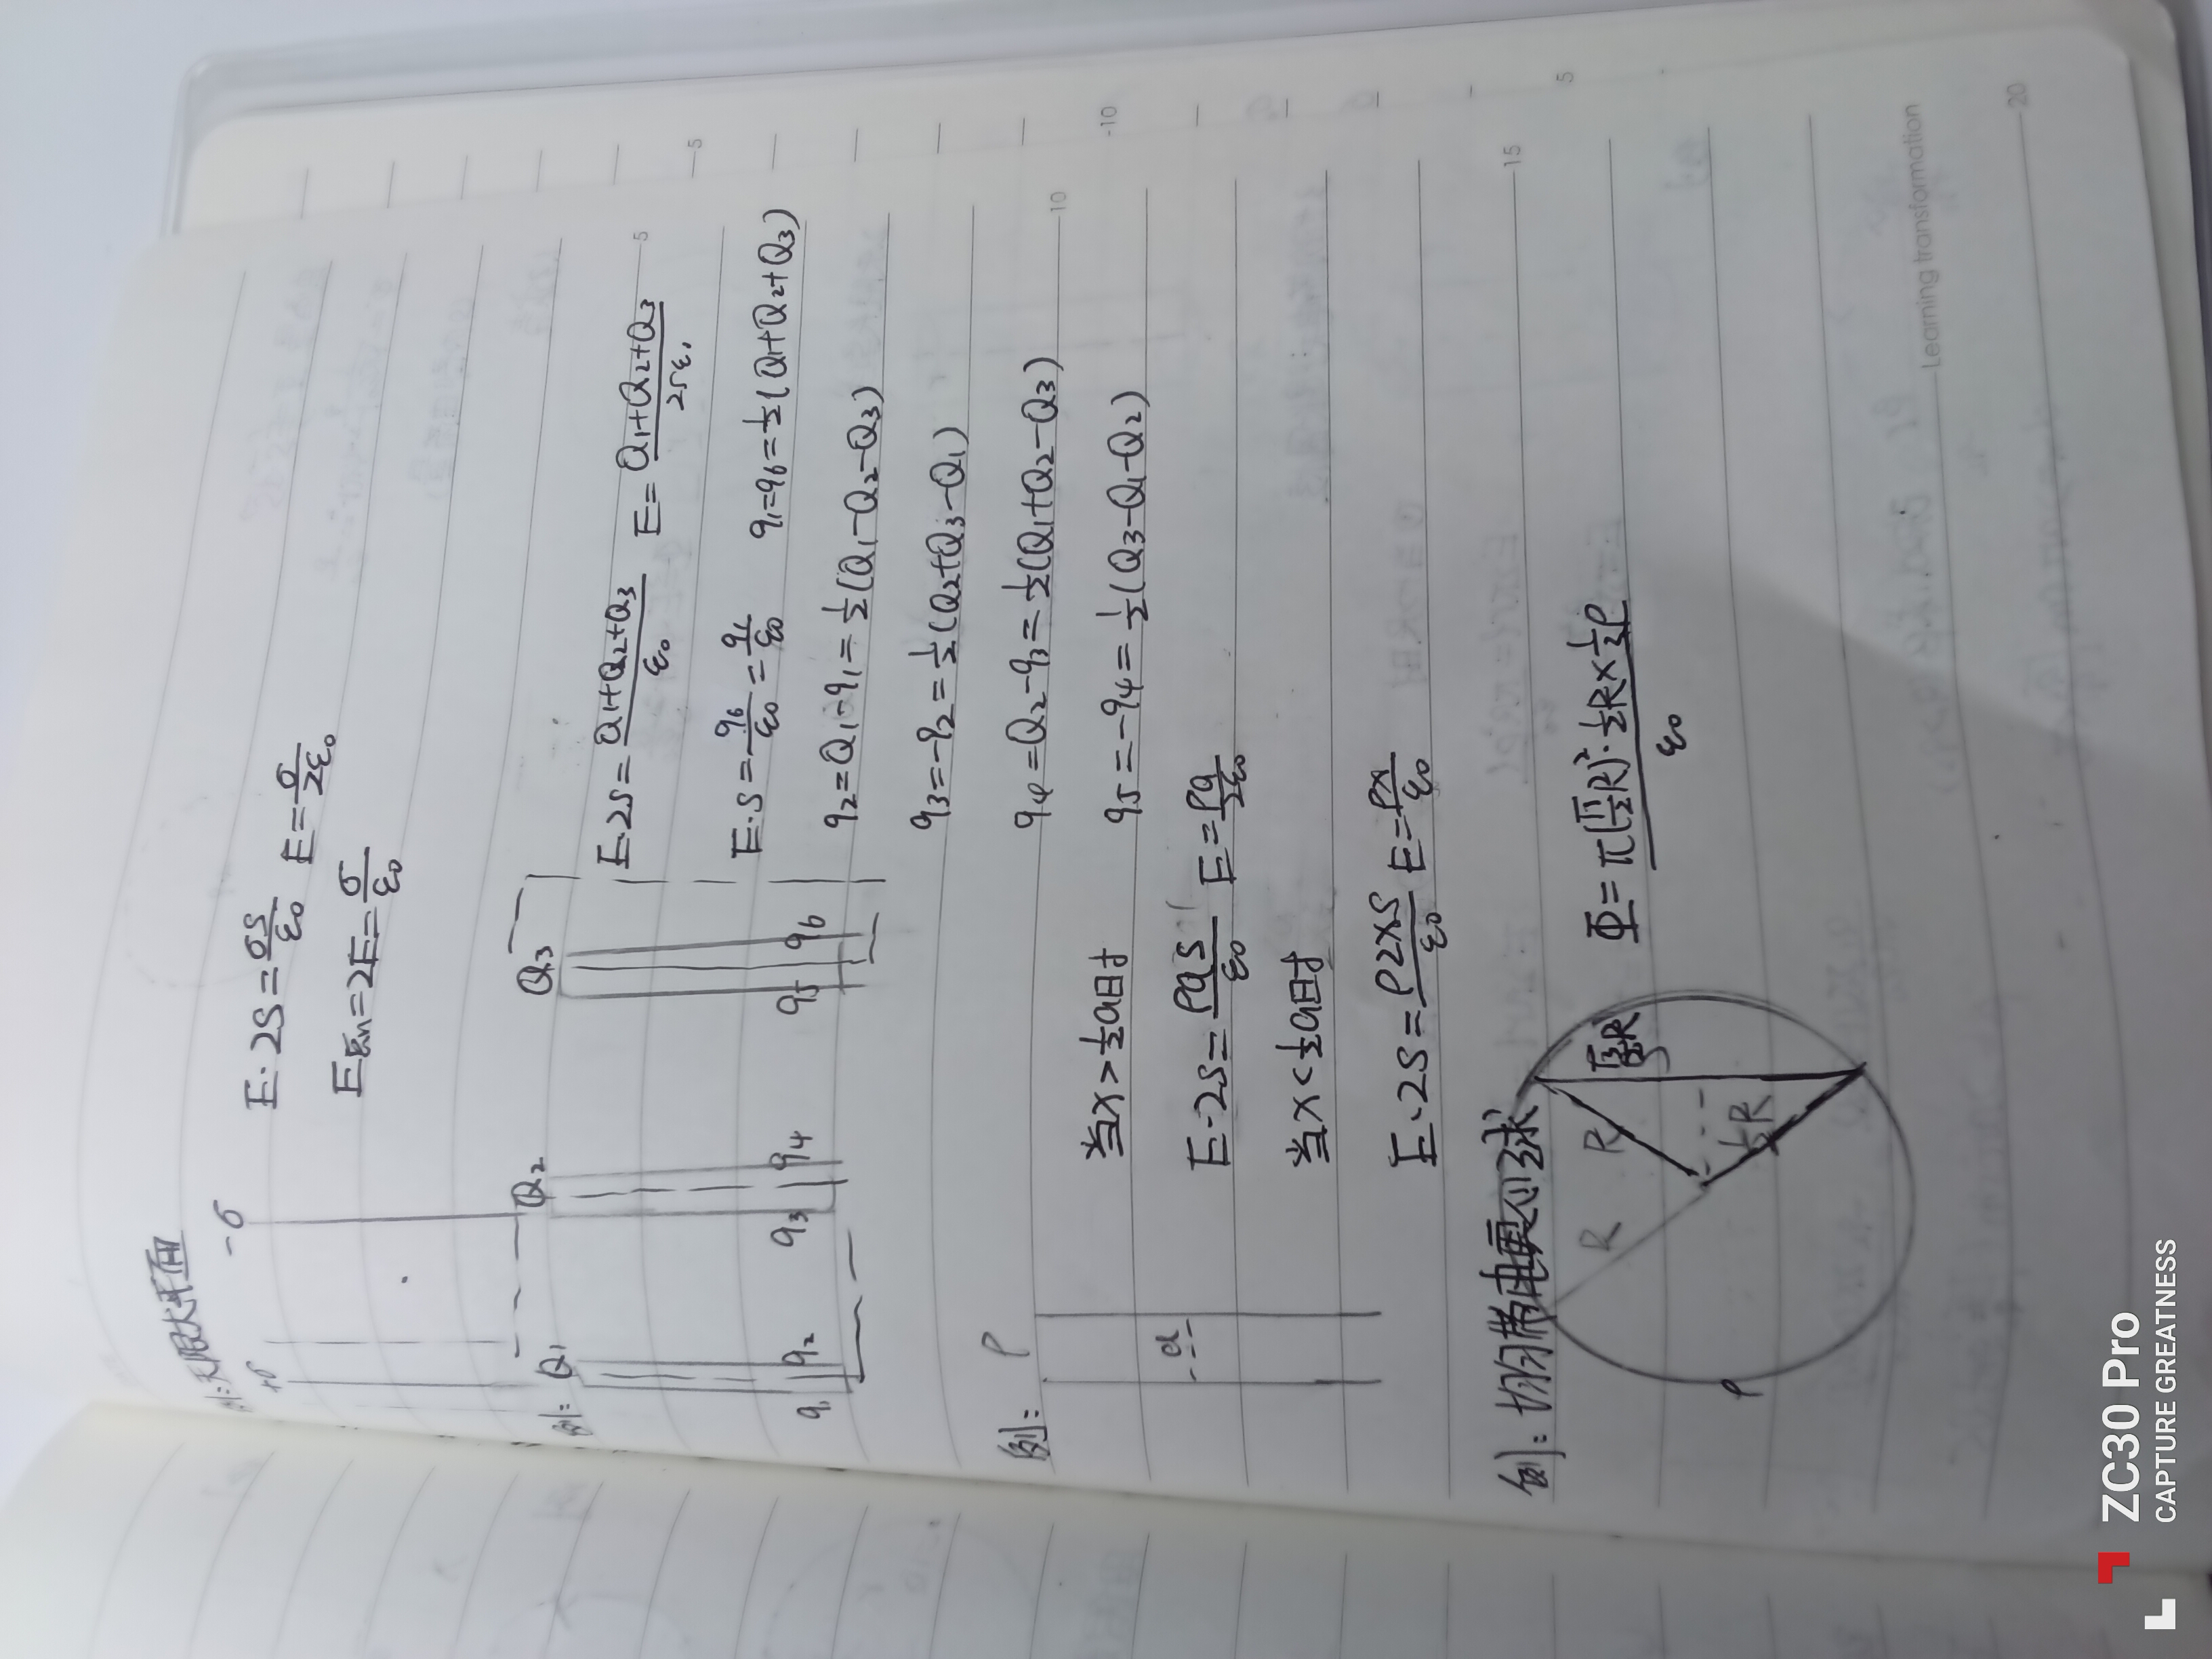 例:无限大平面
+σ -σ
E·2S=σS/ε0 E=σ/2ε0
E=2E=σ/ε0
例: Q1 Q2 Q3
q1 q2 q3 q4 q5 q6
E·2S=Q1+Q2+Q3/ε0 E=Q1+Q2+Q3/2Sε0
E·S=q6/ε0=q1/ε0 q1=q6=1/2(Q1+Q2+Q3)
q2=Q1-q1=1/2(Q1-Q2-Q3)
q3=-q2=1/2(Q2+Q3-Q1)
q4=Q2-q3=1/2(Q1+Q2-Q3)
q5=-q4=1/2(Q3-Q1-Q2)
例: ρ
d
当x>1/2a时
E·2S=ρaS/ε0 E=ρa/2ε0
当x<1/2a时
E·2S=ρ2xS/ε0 E=ρx/ε0
例:均匀带电实心球
R R 1/2R R
ρ
Φ=π(R)²·1/2R×1/3ρ/ε0
5
10
15
20
5
-10
5
Learning transformation
ZC30 Pro
CAPTURE GREATNESS